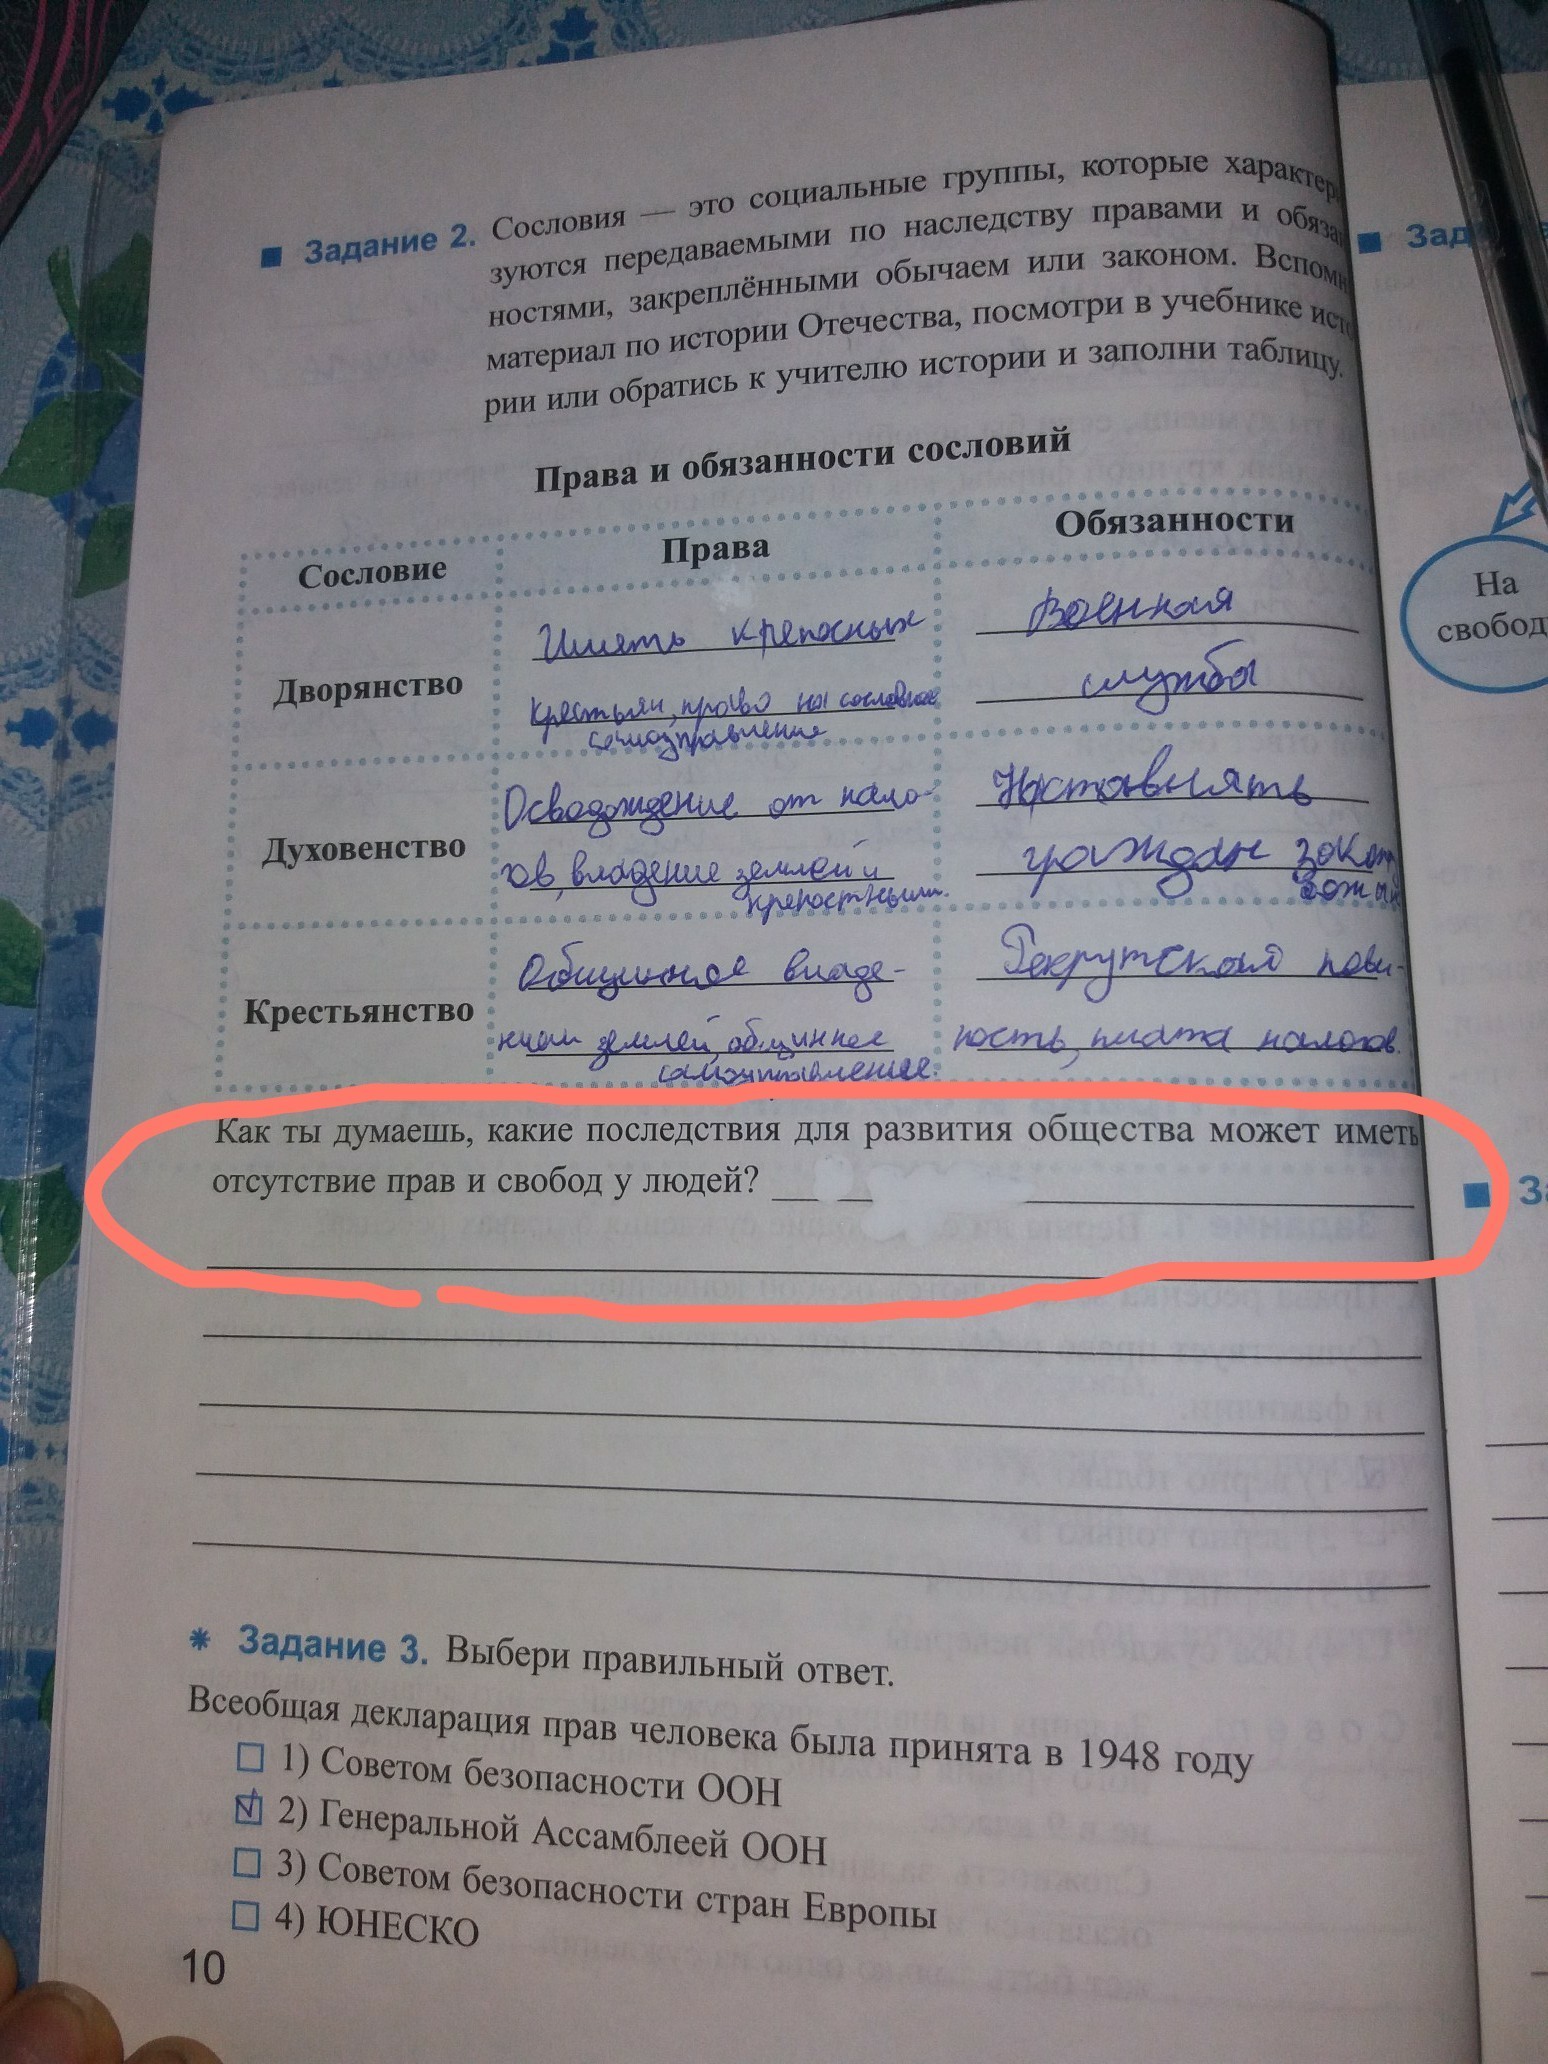 ■ Задание 2. Сословия — это социальные группы, которые характери
зуются передаваемыми по наследству правами и обязан
ностями, закреплёнными обычаем или законом. Вспомни
материал по истории Отечества, посмотри в учебнике исто
рии или обратись к учителю истории и заполни таблицу.
Права и обязанности сословий
Сословие Права Обязанности
Дворянство
Иметь крепосных
крестьян, право на сословное
самоуправление
Военная
служба
Духовенство
Освобождение от нало-
гов, владение землей и
крепостными.
Наставлять
граждан закону
божьи
Крестьянство
Общинное владе-
нием землей, общинное
самоуправление.
Рекрутская пови-
ность, плата налогов.
Как ты думаешь, какие последствия для развития общества может иметь
отсутствие прав и свобод у людей?
* Задание 3. Выбери правильный ответ.
Всеобщая декларация прав человека была принята в 1948 году
1) Советом безопасности ООН
2) Генеральной Ассамблеей ООН
3) Советом безопасности стран Европы
4) ЮНЕСКО
10
Зад
На
свобод